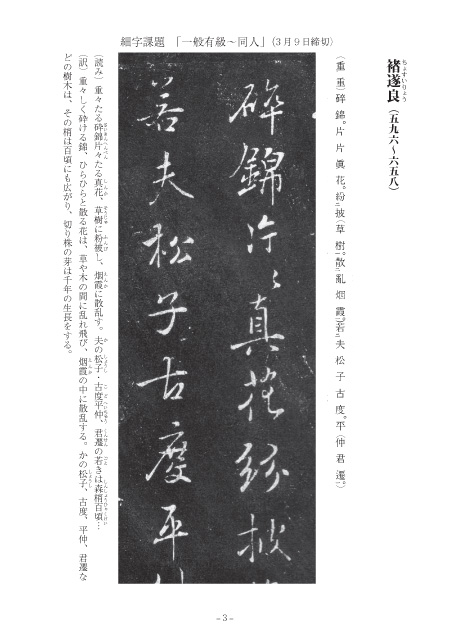 細字課題 「一般有級～同人」(3月9日締切)
褚遂良(五九六～六五八)
ちょすいりょう
(重重)碎錦。片片眞花。紛二披(草樹一。散二亂烟霞一。若二夫松子古度。平(仲君遷。)
碎錦片〻真花紛披
若夫松子古度平
(読み)重々たる碎錦片々たる真花、草樹に紛披し、烟霞に散乱す。夫の松子・古度平仲、君遷の若きは森梢百頃…
(訳)重々しく砕ける錦、ひらひらと散る花は、草や木の間に乱れ飛び、烟霞の中に散乱する。かの松子、古度、平仲、君遷な
どの樹木は、その梢は百頃にも広がり、切り株の芽は千年の生長をする。
-3-